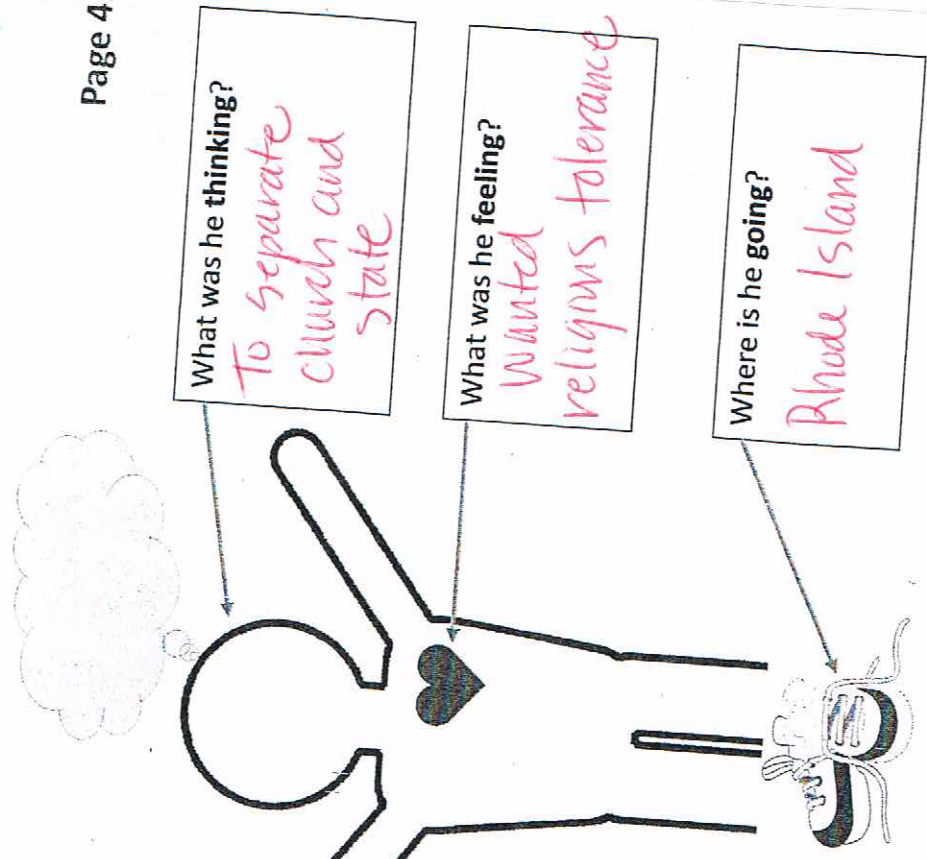 Page 4
What was he thinking?
To separate
church and
state
What was he feeling?
Wanted
religious tolerance
Where is he going?
Rhode Island